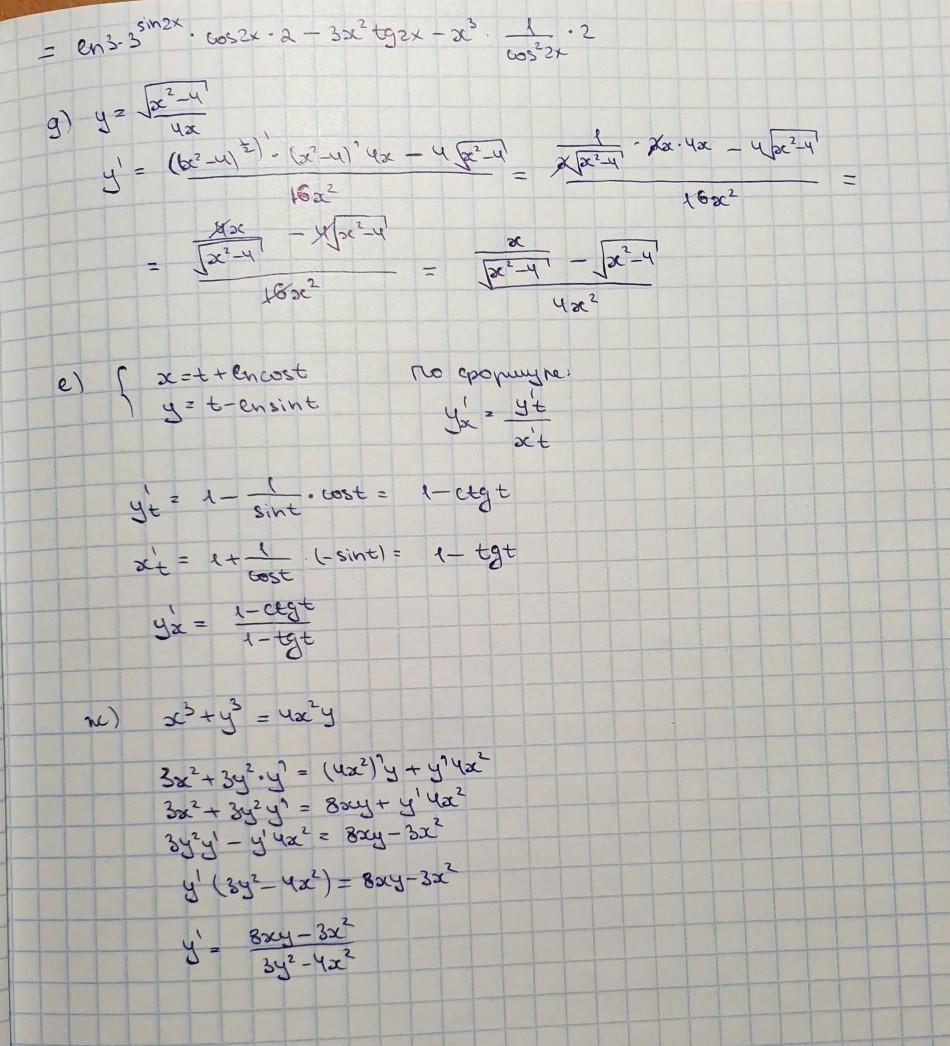 = ln3·3^sin2x · cos2x·2 − 3x² tg2x − x³ · 1/cos²2x · 2
д) y = √(x²−4)/4x
y' = ((x²−4)^½)' · (x²−4)' 4x − 4√(x²−4) / 16x² = 1/2√(x²−4) · 2x·4x − 4√(x²−4) / 16x² =
= 4x/√(x²−4) − 4√(x²−4) / 16x² = x/√(x²−4) − √(x²−4) / 4x²
е) { x = t + ln cost По формуле:
y = t − ln sint y'x = y't/x't
y't = 1 − 1/sint · cost = 1 − ctgt
x't = 1 + 1/cost · (−sint) = 1 − tgt
y'x = 1−ctgt / 1−tgt
ж) x³ + y³ = 4x²y
3x² + 3y²·y' = (4x²)'y + y'4x²
3x² + 3y²y' = 8xy + y'4x²
3y²y' − y'4x² = 8xy − 3x²
y'(3y² − 4x²) = 8xy − 3x²
y' = 8xy − 3x² / 3y² − 4x²